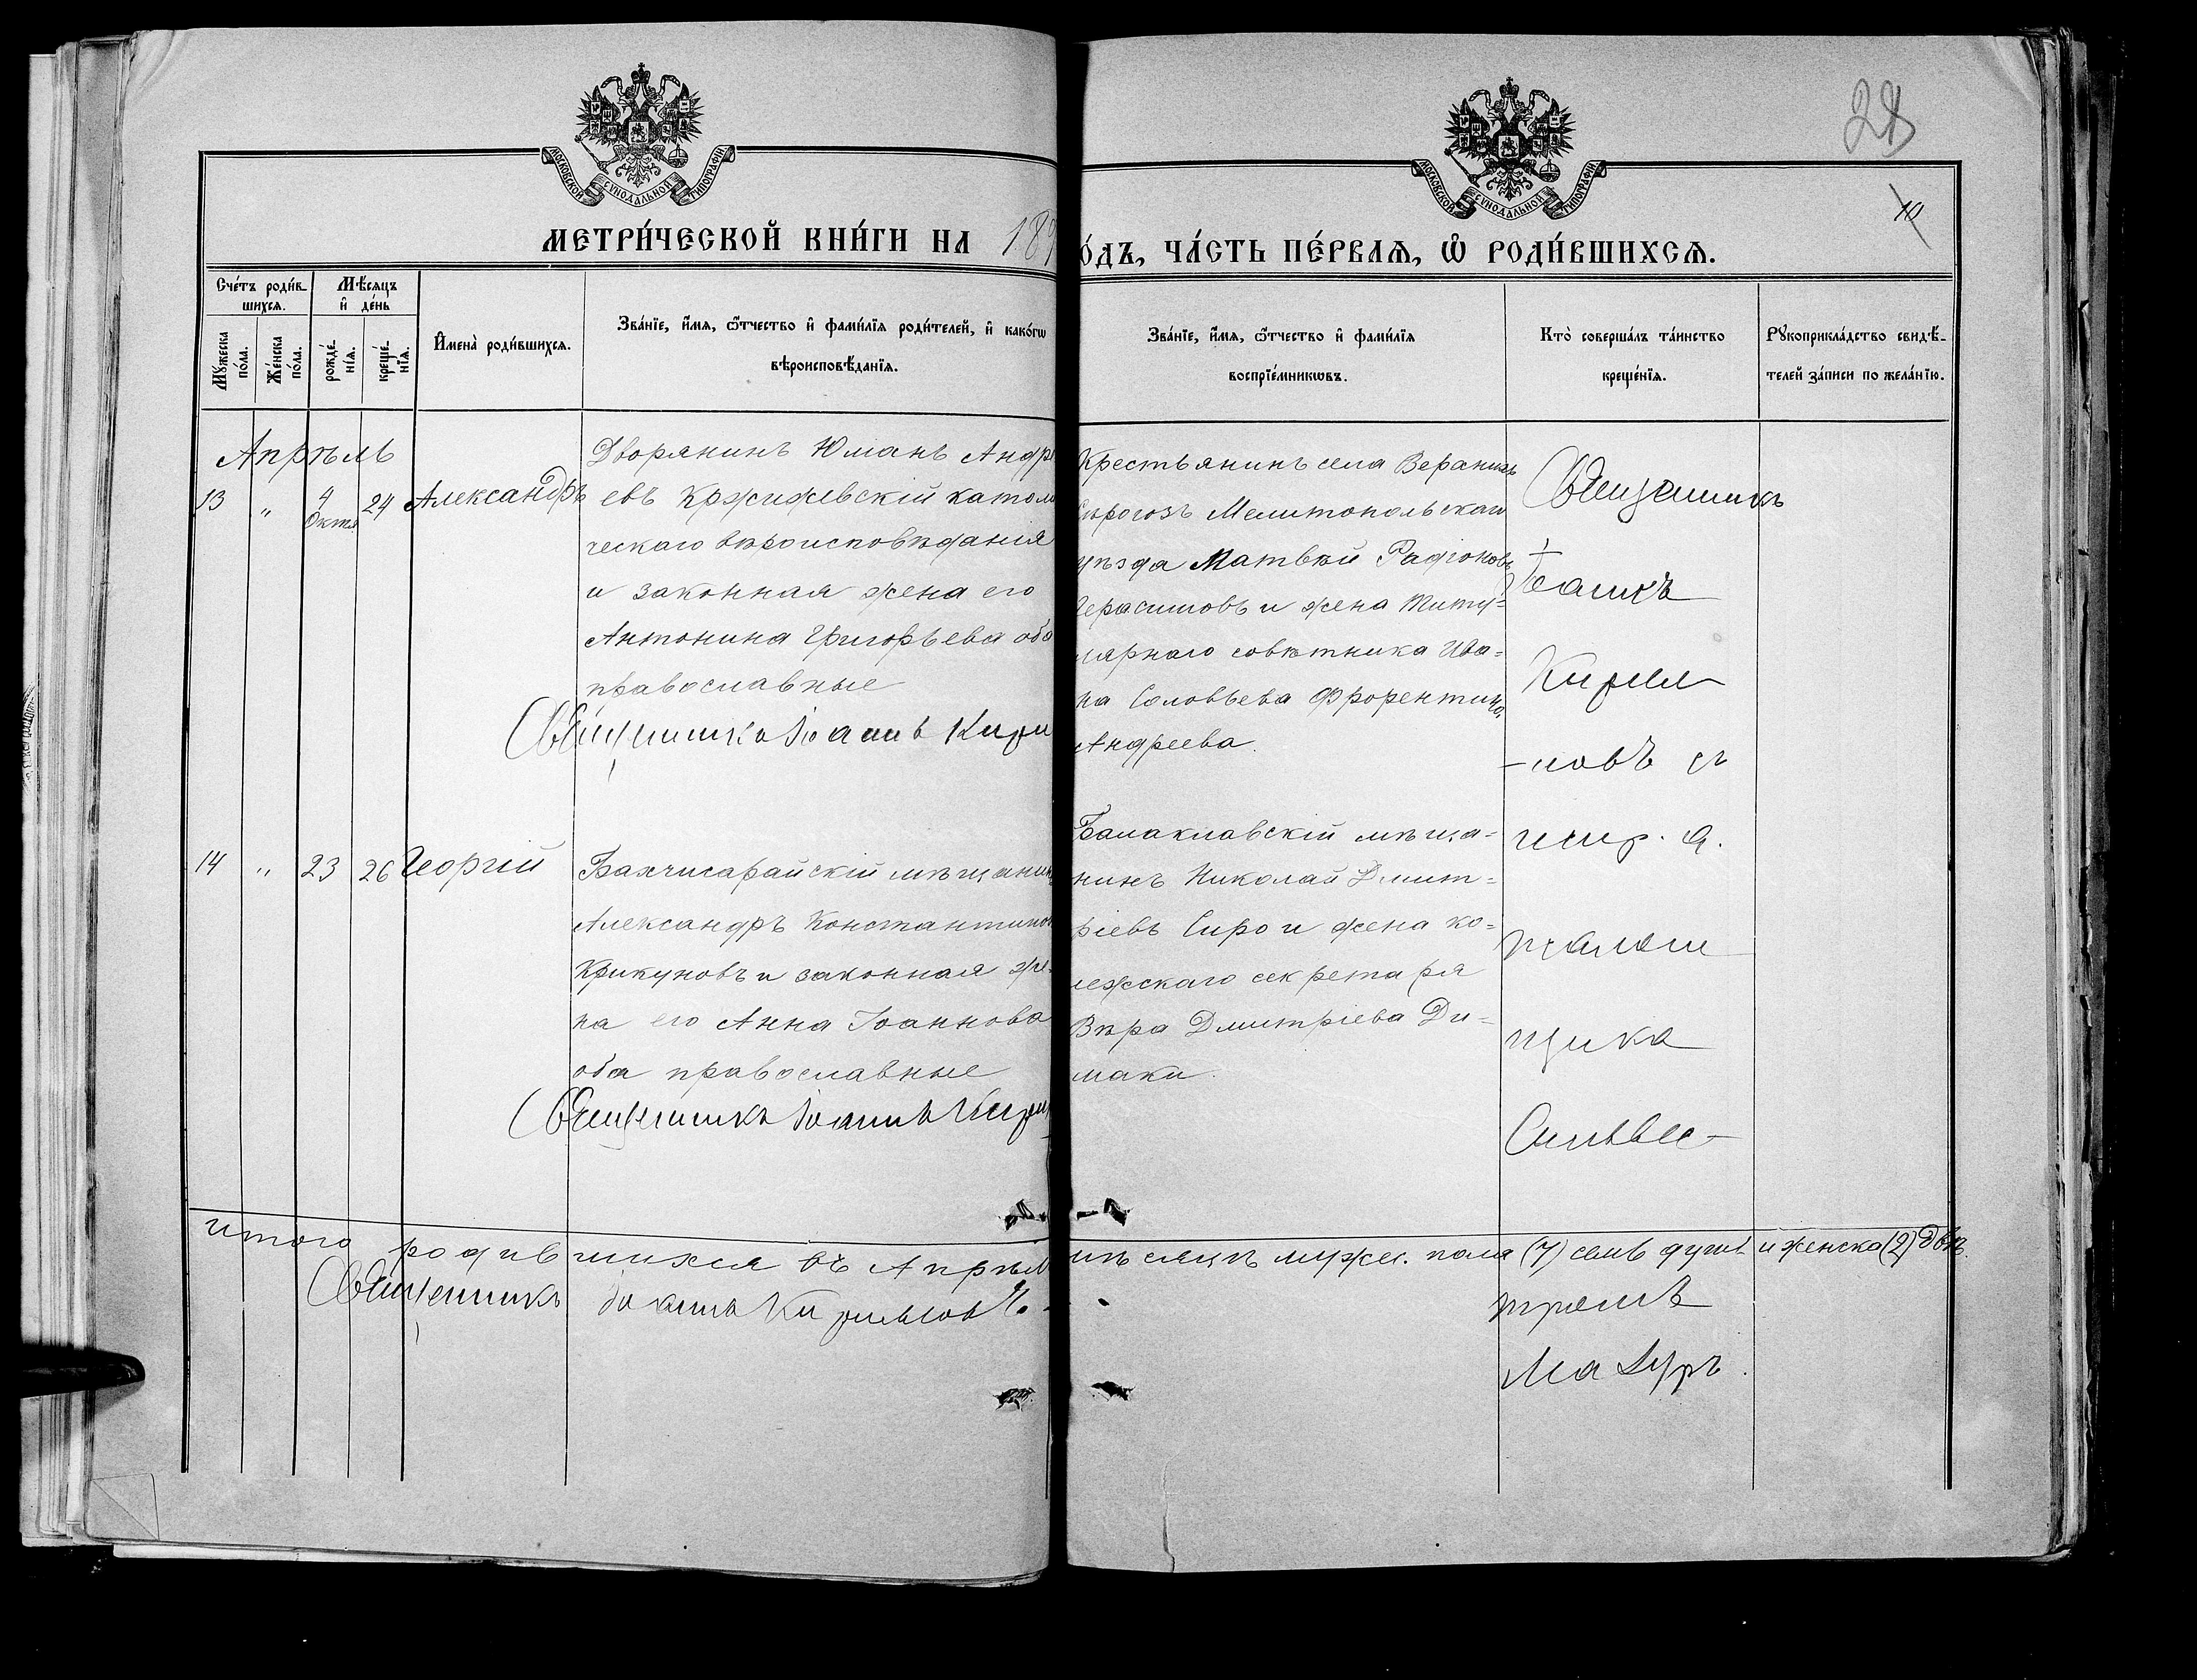 28
10
МОСКОВСКОЙ СѴНОДАЛЬНОЙ ТИПОГРАФІИ
МОСКОВСКОЙ СѴНОДАЛЬНОЙ ТИПОГРАФІИ
МЕТРИ́ЧЕСКОЙ КНИ́ГИ НА 189
О́ДЪ, ЧА́СТЬ ПЕ́РВАѦ, Ѡ РОДИ́ВШИХСѦ.
Сче́тъ роди́в-
шихсѧ.
Мѣ́сѧцъ
и҆ де́нь
Мꙋ́жеска
по́ла.
Же́нска
по́ла.
рожде́-
нїѧ.
креще́-
нїѧ.
И҆мена̀ роди́вшихсѧ.
Зва́нїе, и҆́мѧ, ѻ҆́тчество и҆ фами́лїѧ роди́телей, и҆ како́гѡ
вѣроисповѣ́данїѧ.
Зва́нїе, и҆́мѧ, ѻ҆́тчество и҆ фами́лїѧ
воспрїе́мникѡвъ.
Кто̀ соверша́лъ та́инство
креще́нїѧ.
Рꙋкоприкла́дство свидѣ́-
телей за́писи по жела́нїю.
Апрѣль
13 " 4 Октя 24 Александръ
Дворянинъ Юліанъ Андре
евъ Кржижевскій католи
ческаго вѣроисповѣданія
и законная жена его
Антонина Григорьева оба
православные
Священникъ Іоаннъ Кири
Крестьянинъ села Верхнихъ
Сѣрогозъ Мелитопольскаго
уѣзда Матвѣй Радіоновъ
Герасимовъ и жена титу=
лярнаго совѣтника Ива=
на Соловьева Флорентина
Андреева.
Священникъ
Іоаннъ
Кирил
-ловъ съ
14 " 23 26 Георгій
Бахчисарайскій мѣщанинъ
Александръ Константинов
Крикуновъ и законная же-
на его Анна Іоаннова
оба православные
Священникъ Іоаннъ Кири
Балаклавскій мѣща-
нинъ Николай Дмит=
ріевъ Сиро и жена ко=
лежскаго секретаря
Вѣра Дмитріева Ди-
маки.
испр. д.
псалом
щика
Сильвес-
тромъ
Мазуръ.
Итого родившихся въ Апрѣл
мѣсяцѣ мужес. пола (7) семь душъ и женска (2) двѣ.
Священникъ Іоаннъ Кирилловъ